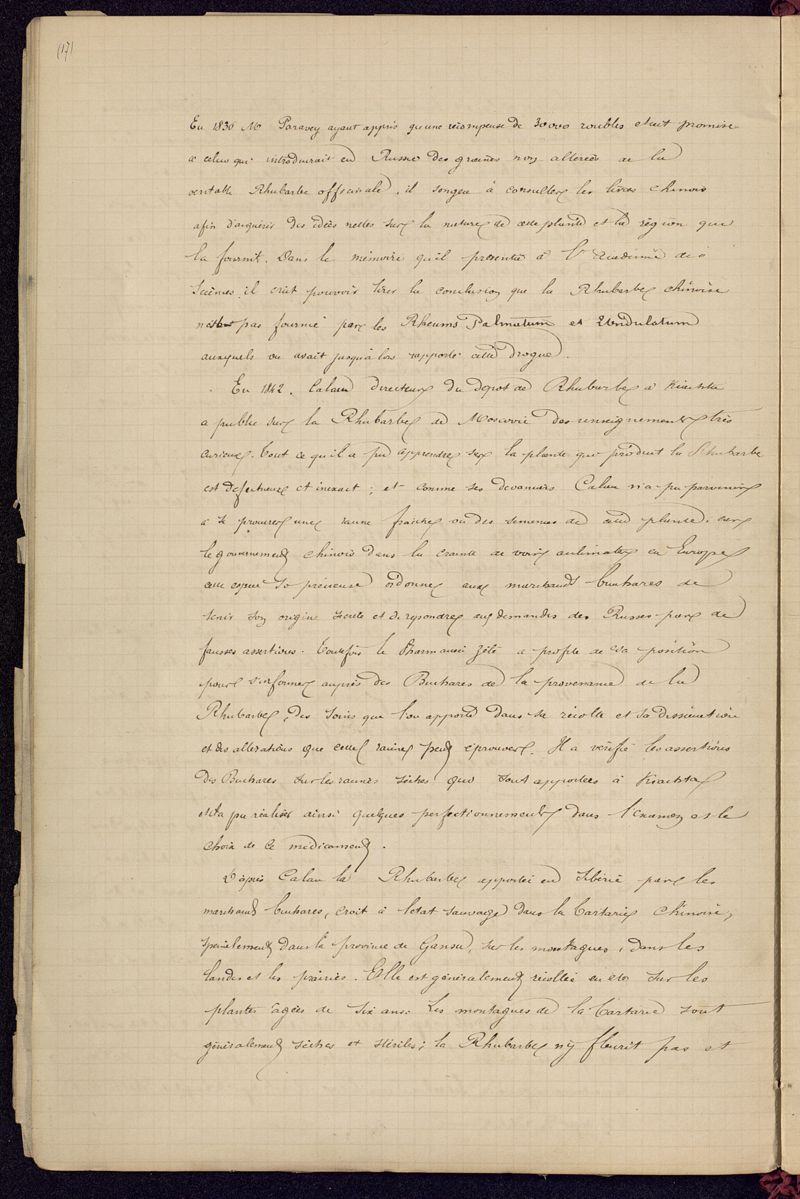 (17)
En 1830 Mr Paravey ayant appris qu'une récompense de 30000 roubles etait promise
a celui qui introduirait en Russie des graines non alterees de la
veritable Rhubarbe officinale, il songea à consulter les livres chinois
afin d'acquérir des idées nettes sur la nature de cette plante et la région qui
la fournit. Dans le mémoire qu'il presenta à l'Academie des
Sciences il crût pouvoir tirer la conclusion que la Rhubarbe chinoise
n'etait pas fournie par les Rheums Palmatum et Undulatum
auxquels on avait jusqu'alors rapporté cette drogue.
En 1842, Calau directeur du dépot de Rhubarbe à Kiachta
a publié sur la Rhubarbe de Moscovie des renseignements très
curieux. Tout ce qu'il a pu apprendre sur la plante qui produit la Rhubarbe
est défectueux et inexact; et comme ses devanciers Calau n'a pu parvenir
a se procurer une racine fraiche ou des semences de cette plante, car
le gouvernement chinois dans la crainte de voir acclimater en Europe
cette espece si précieuse ordonne aux marchands buchares de
tenir son origine secrète et de repondre aux demandes des Russes par de
fausses assertions. Toutefois le Pharmacien zélé a profité de sa position
pour s'informer auprès des Buchares de la provenance de la
Rhubarbe, des soins que l'on apporte dans sa récolte et sa dissication
et des alterations que cette racine peut éprouver. Il a vérifié les assertions
des Buchares sur les racines sèches qui sont apportées à Kiachta
et il a pu réaliser ainsi quelques perfectionnements dans l'examen et le
choix de ce médicament.
D'après Calau la Rhubarbe apportée en Sibérie par les
marchands buchares, croit à l'etat sauvage dans la Tartarie chinoise,
specialement dans la province de Gansu, sur les montagnes, dans les
landes et les prairies. Elle est généralement récoltée en été sur les
plantes âgées de six ans. Les montagnes de la Tartarie sont
généralement sèches et stériles; la Rhubarbe n'y fleurit pas et